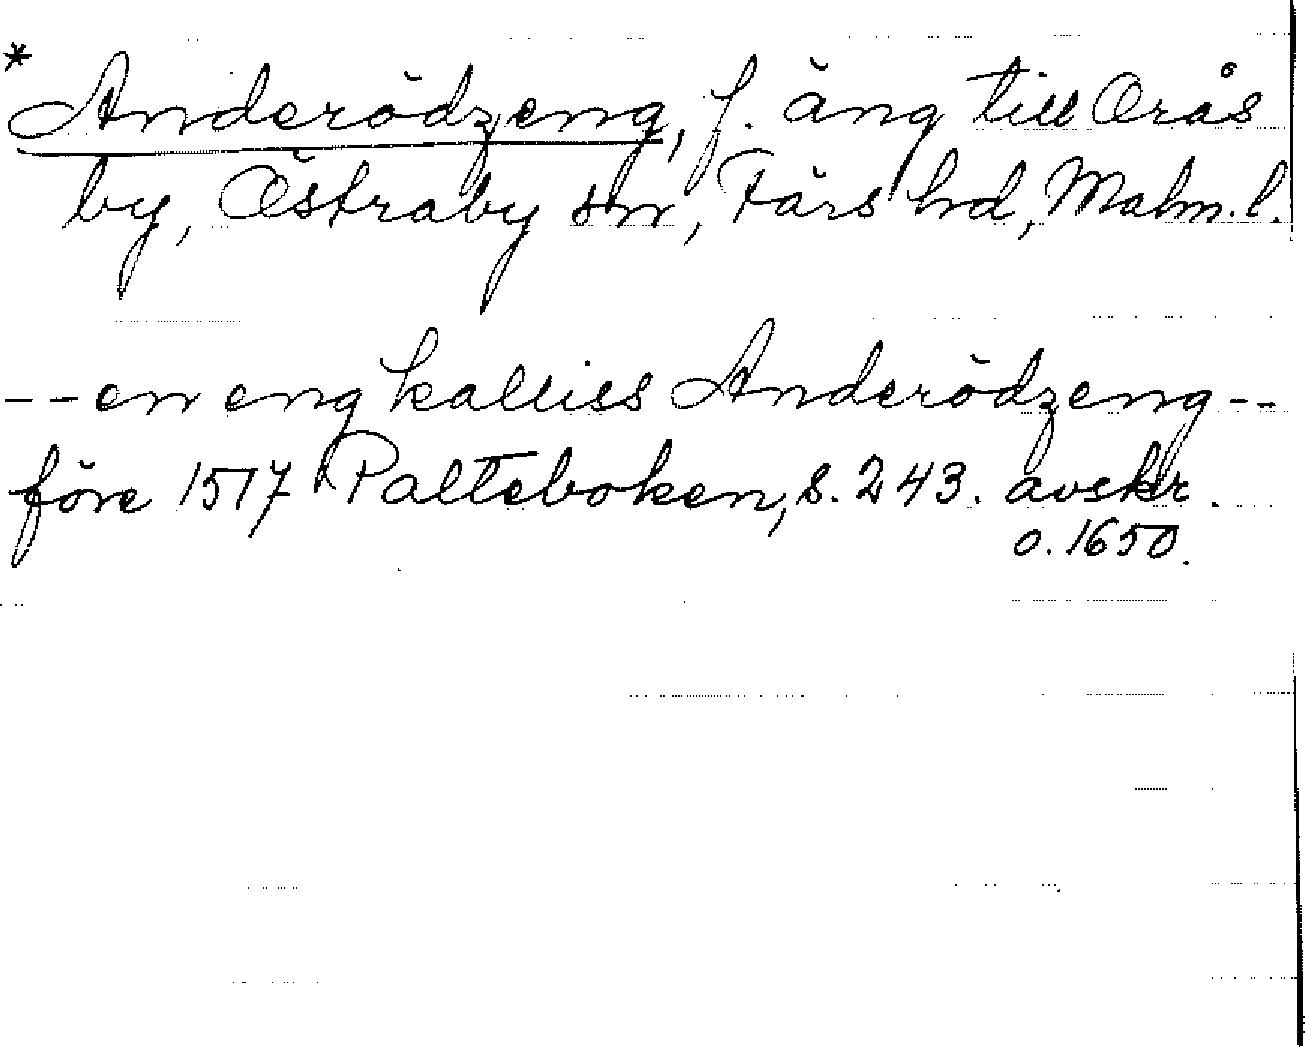 * Anderödzeng, f. äng till Orås
by, Östraby sn, Färs hd, Malm. l.
-- en eng kalliss Anderödzeng --
före 1517 Palteboken, s. 243. avskr.
o. 1650.